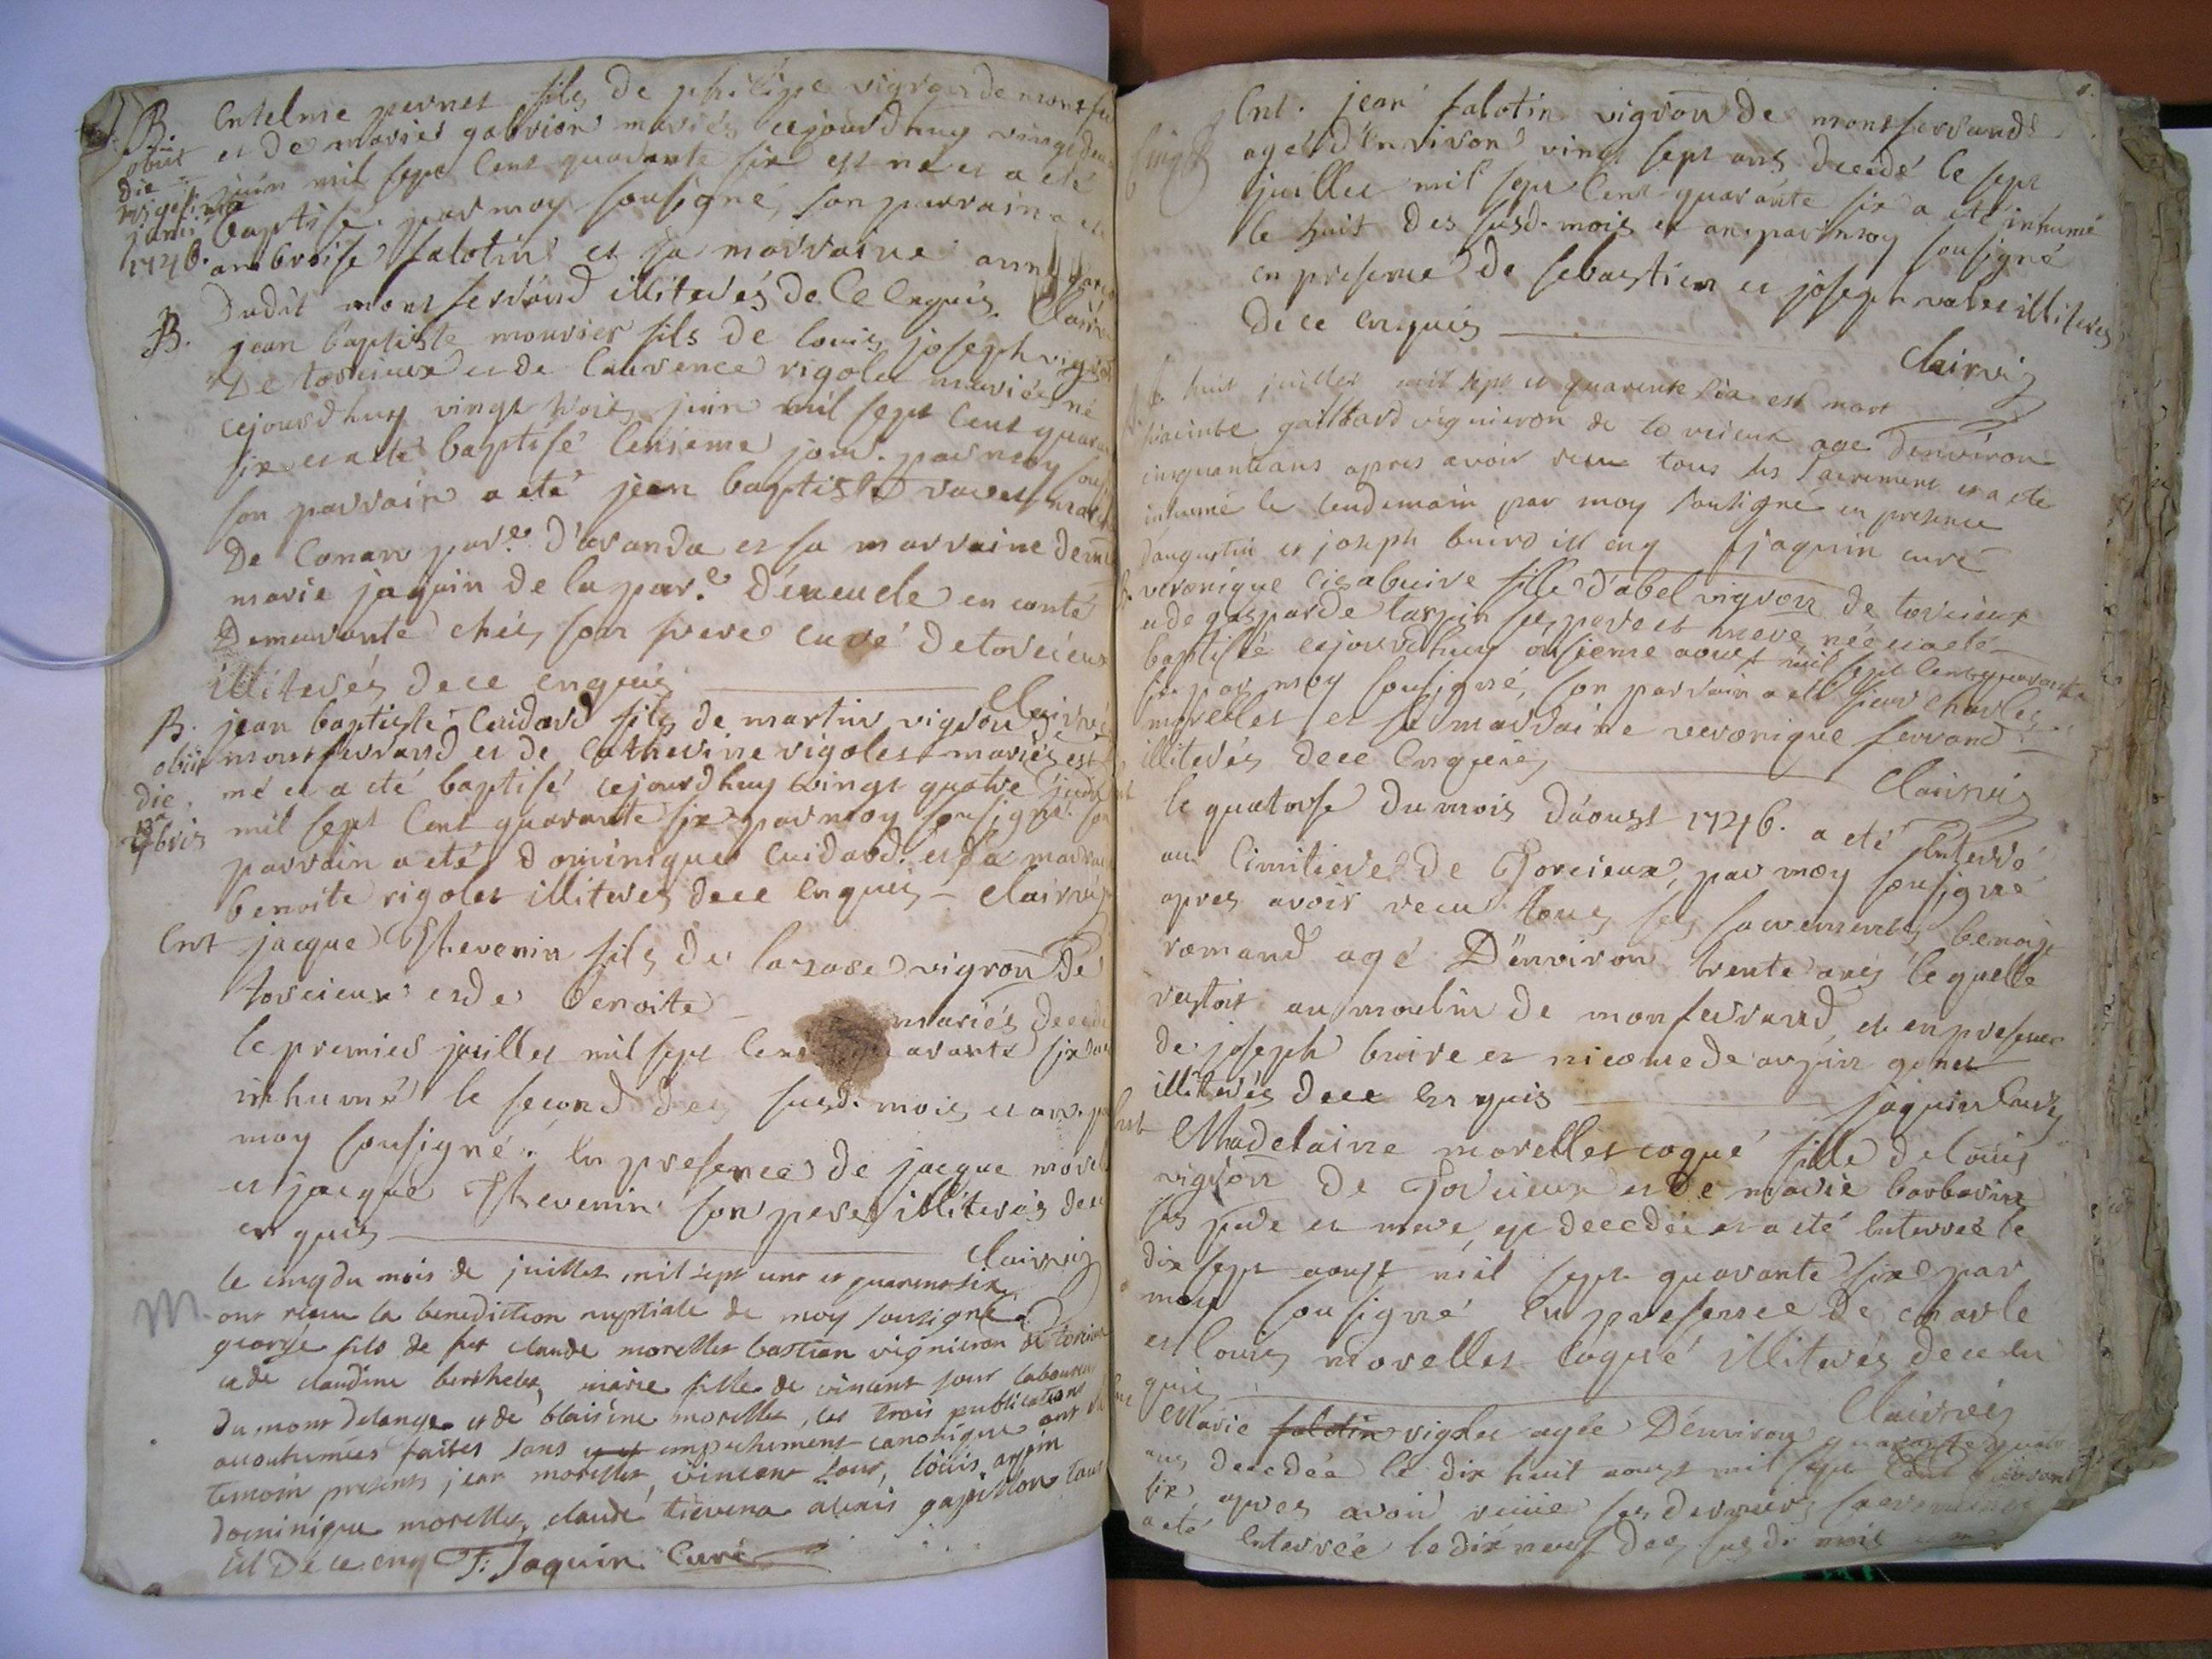 B. Entelme pernet fils de philippe vigron de montfer
obiit et de marie gabrion mariés cejourdhuy vingt deux
die juin mil sept cent quarante six est né et a eté
vigesima baptisé par moy sousigné, son parrain a eté
junii
1746. ambroise falotin et sa marraine anne
dudit montferrand illiterés de ce enquis. Clairvis
B. jean baptiste mouvier fils de louis joseph vigron
de torcieux et de laurence rigolet mariés né
cejourdhuy vingt trois juin mil sept cent quaran
six et a eté baptisé le meme jour par moy sous
son parrain a eté jean baptiste
de Conan par.e d'aranda et sa marraine dem
marie jaquin de la par.e d'eneucle en comté
demeurante chés son frere curé de torcieux
illiterés de ce enquis Clairvis
B. jean baptiste Cuidard fils de martin vigron de
obiit montferrand et de Catherine rigolet mariés est
die né et a eté baptisé cejourdhuy vingt quatre juin
12a mil sept cent quarante six par moy sousigné. son
9bris
parrain a eté dominique cuidard et sa marraine
benoite rigolet illiteres de ce enquis - Clairvis
Ent jacque Thevenin fils de lazare vigron de
torcieux et de Benoite mariés decede
le premier juillet mil sept cent quarante six a eté
inhumé le second des susd. mois et an par
moy sousigné. En presence de jacque morel
et jacque Thevenin son pere illiterés de ce
enquis Clairvis
M. le cinq du mois de juillet mil sept cent et quarent six
ont receu la benediction nuptiale de moy sousigné
george fils de feu claude morellet bastian vigneron de torcieux
et de claudine berthelet, marie fille de vincent jour laboureur
du mont delange et de blaisine morellet, les trois publications
accoutumées faites sans empechement canonique ont eté
temoin presents jean morellet, vincent jour, loüis arpin
dominique morellet, claude tievena alexis gapillon tous
ill de ce enq F: Jaquin Curé
Ent. jean falotin vigron de montferrand
agé d'environ vingt sept ans decedé le sept
juillet mil sept cent quarante six a eté inhumé
le huit des susd. mois et an par moy sousigné
en presence de sebastien et joseph illiteres
de ce enquis
Clairvis
le huit juillet mil sept et quarente six est mort
hiacinte gaillard vigneron de torcieux age denviron
cinquante ans apres avoir receu tous les sacrement et a ete
inhumé le lendemain par moy sousigné en presence
daugustin et joseph buire ill enq fjaquin curé
B. veronique cisabuire fille d'abel vigron de torcieux
et de gasparde tarpin ses pere et mere née et a eté
baptisée cejourdhuy onsieme aoust mil sept cent quarante
six par moy sousigné, son parrain a eté sieur charles
morellet et sa marraine veronique ferrand
illiterés de ce enquis Clairvis
le quatorse du mois d'aoust 1746. a eté Enterré
au Cimitiere de Torcieux, par moy sousigné
apres avoir receu tous ses sacrements benoit
romand agé d'environ trente ans lequelle
restoit au moulin de monferrand, et en presence
de joseph buire et nicomede arpin genet
illiterés de ce enquis jaquin Curé
Ent Madelaine morellet coqué fille de loüis
vigron de Torcieux et de marie barbarin
ses pere et mere, est decedée et a eté Enterrée le
dix sept aoust mil sept quarante six par
moy sousigné En presence de charle
et louis morellet coqué illiterés de ce en
quis Clairvis
Marie falotin rigolet agée d'environ quarante quatre
ans decedée le dix huit aoust mil sept cent quarante
six, apres avoir receu ses derniers sacrements
a eté Enterrée le dix neuf des susd. mois